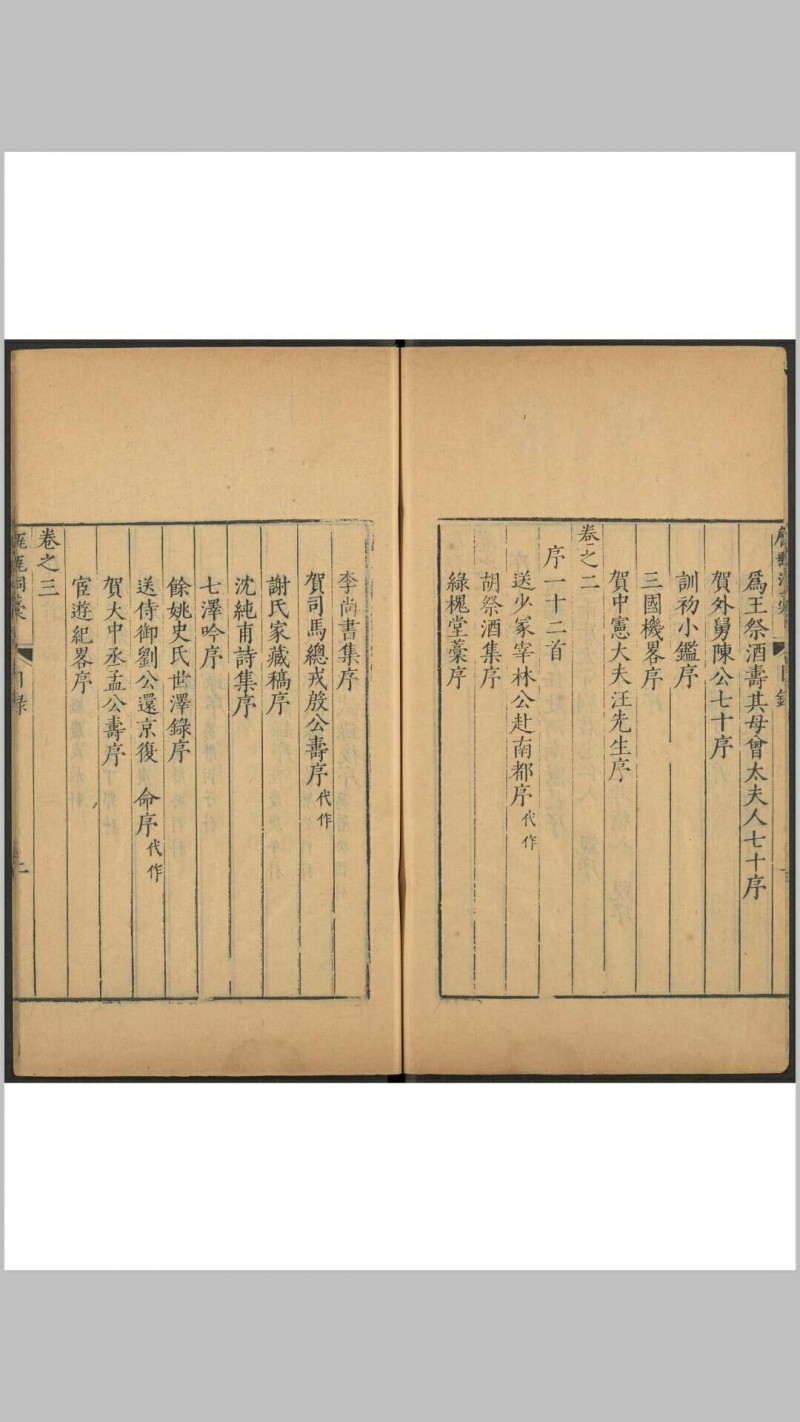 爲王祭酒壽其母曾太夫人七十序
賀外舅陳公七十序
訓初小鑑序
三國機畧序
賀中憲大夫汪先生序
卷之二
序一十二首
送少冢宰林公赴南都序代作
胡祭酒集序
綠槐堂藁序
李尚書集序
賀司馬總戎殷公壽序代作
謝氏家藏稿序
沈純甫詩集序
七澤吟序
餘姚史氏世澤錄序
送侍御劉公還京復 命序代作
賀大中丞孟公壽序
宦遊紀畧序
卷之三
目錄